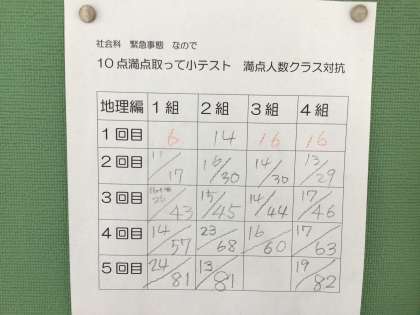 社会科 緊急事態 なので
10点満点取って小テスト 満点人数クラス対抗
地理編 1組 2組 3組 4組
1回目 6 14 16 16
2回目 11/17 16/30 14/30 13/29
3回目 26/43 15/45 14/44 17/46
4回目 14/57 23/68 16/60 17/63
5回目 24/81 13/81 19/82